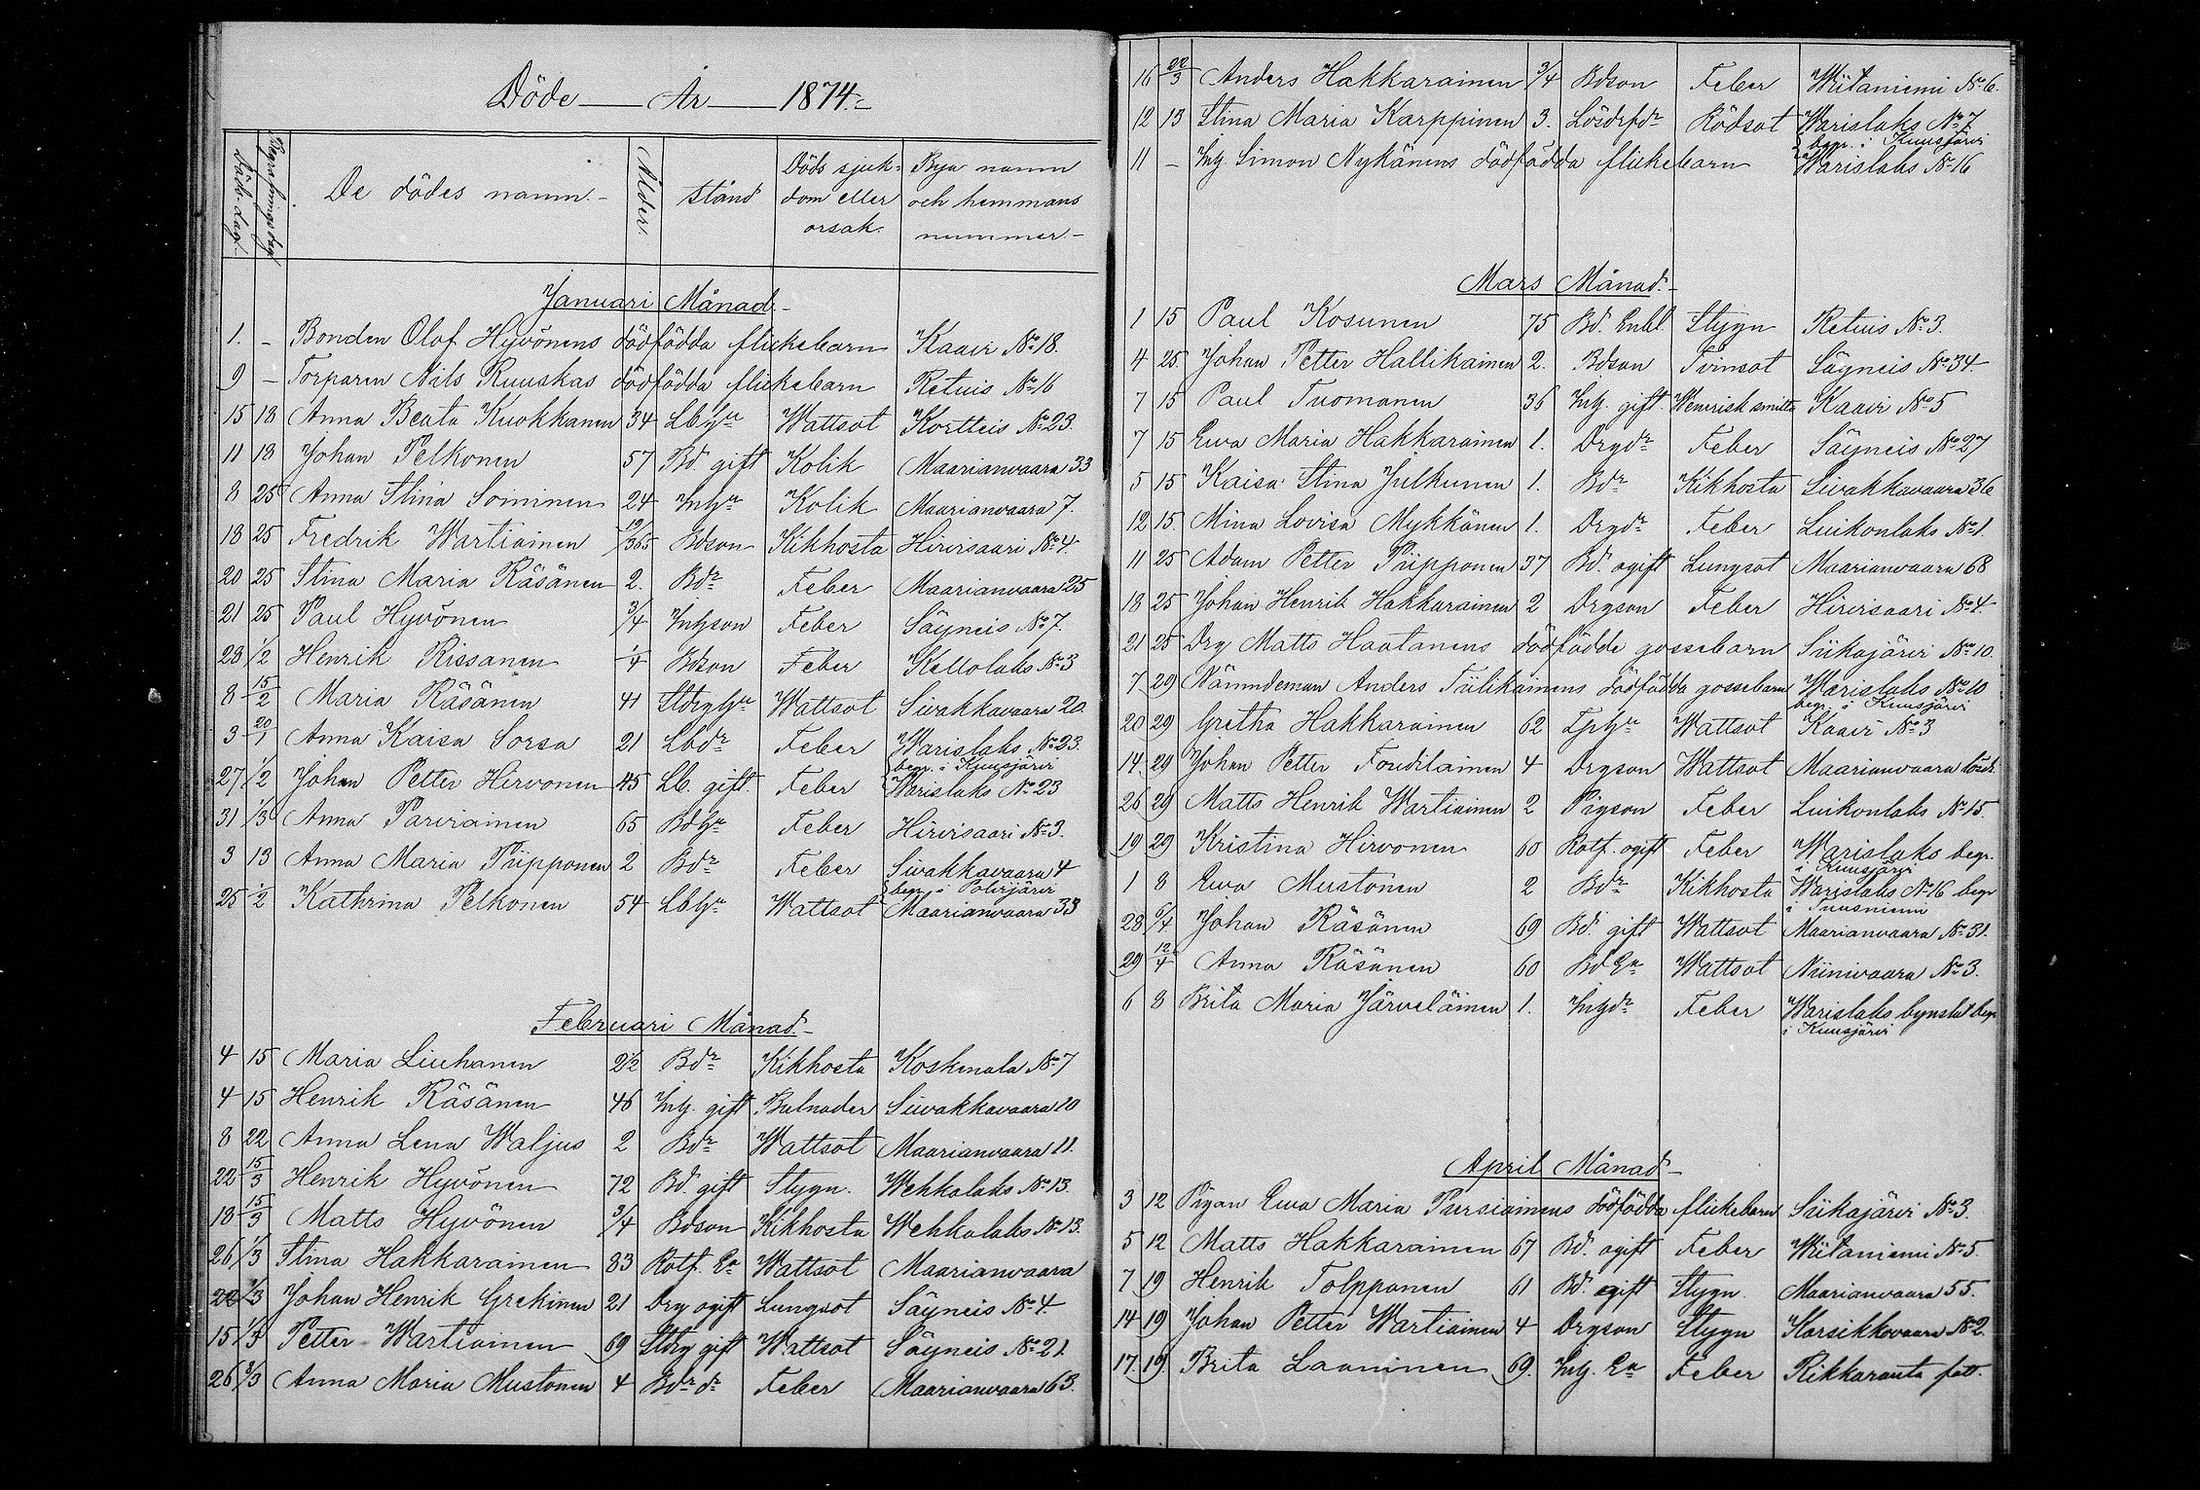 Döde — År — 1874.
Döds dag. Begrafnings dag De dödes namn. Ålder. Stånd Döds sjukdom eller orsak. Bya namn och hemmans nummer.
Januari Månad.
1. – Bonden Olof Hyvönens dödfödda flickebarn Kaavi No 18.
9 – Torparen Nils Ruuskas dödfödda flickebarn Retuis No 16
15 18 Anna Beata Kuokkanen 34 Lbhu Wattsot Kortteis No 23.
11 18 Johan Pelkonen 57 Bd. gift Kolik Maarianvaara 33
8 25 Anna Stina Soininen 24 Inhu Kolik Maarianvaara 7.
18 25 Fredrik Wartiainen 19/365 Bdson Kikhosta Hirvisaari No 4.
20 25 Stina Maria Räsänen 2. Bdr Feber Maarianvaara 25
21 25 Paul Hyvönen 3/4 Inhson Feber Säyneis No 7.
28 1/2 Henrik Rissanen 1/4 Bdson Feber Kellolaks No 3
8 15/2 Maria Räsänen 41 Stdrghu Wattsot Sivakkavaara 20.
3 20/1 Anna Kaisa Sorsa 21 Lbdr Feber Warislaks No 23.
begr. i Kuusjärvi
27 1/2 Johan Petter Hirvonen 45 Lb. gift. Feber Warislaks No 23
31 1/3 Anna Parviainen 65 Bdhu Feber Hirvisaari No 3.
3 13 Anna Maria Piipponen 2 Bdr Feber Sivakkavaara 4
begr. i Polvijärvi
25 1/2 Kathrina Pelkonen 54 Lbhu Wattsot Maarianvaara 33
Februari Månad.
4 15 Maria Liuhanen 2 1/2 Bdr Kikhosta Koskenala No 7
4 15 Henrik Räsänen 46 Inh. gift Bulnader Sivakkavaara 10
8 22 Anna Lena Waljus 2 Bdr Wattsot Maarianvaara 11.
22 15/3 Henrik Hyvönen 72 Bd. gift Stygn. Wehkalaks No 13.
18 15/3 Matts Hyvönen 3/4 Bdson Kikhosta Wehkalaks No 13.
26 1/3 Stina Hakkarainen 83 Rotf. Ea Wattsot Maarianvaara
22 1/3 Johan Henrik Grekinen 21 Drg ogift Lungsot Säyneis No 4.
15 1/3 Petter Wartiainen 69 Stdrg gift Wattsot Säyneis No 21.
26 8/3 Anna Maria Mustonen 4 Bdrdr Feber Maarianvaara 63.
16 22/3 Anders Hakkarainen 3/4 Bdson Feber Wiitaniemi No 6.
12 13 Stina Maria Karppinen 3. Lösdrfdr Rödsot Warislaks No 7
begr. i Kuusjärvi
11 – Inh. Simon Nykänens dödfödda flickebarn Warislaks No 16
Mars Månad.
1 15 Paul Kosunen 75 Bd. Enkl. Stygn Retuis No 3.
4 25. Johan Petter Hallikainen 2. Bdson Tvinsot Säyneis No 34
7 15 Paul Tuomanen 36 Inh. gift. Wenerisk smitta Kaavi No 5
7 15 Ewa Maria Hakkarainen 1. Drgdr Feber Säyneis No 27
5 15 Kaisa Stina Julkunen 1. Bdr Kikhosta Sivakkavaara 36
12 15. Mina Lovisa Mykkänen 1. Drgdr Feber Luikonlaks No 1.
11 25 Adam Petter Piipponen 37 Bd. ogift Lungsot Maarianvaara 68
18 25 Johan Henrik Hakkarainen 2 Drgson Feber Hirvisaari No 4
21 25 Drg Matts Haatanens dödfödde gossebarn Siikajärvi No 10.
7 29 Nämndeman Anders Tiilikainens dödfödda gossebarn Warislaks No 10
begr. i Kuusjärvi
20 29 Gretha Hakkarainen 62 Tphu Wattsot Kaavi No 3
14. 29 Johan Petter Toudilainen 4 Drgson Wattsot Maarianvaara lösdr.
26 29 Matts Henrik Wartiainen 2 Pigson Feber Luikonlaks No 15.
19 29 Kristina Hirvonen 60 Rotf. ogift Feber Warislaks begr.
i Kuusjärvi
1 8 Ewa Mustonen 2 Bdr Kikhosta Warislaks No 16 begr
i Tuusniemi
28 6/4 Johan Räsänen 69 Bd. gift Wattsot Maarianvaara No 31.
29 12/4 Anna Räsänen 60 Bd Ea Wattsot Niinivaara No 3.
6 8 Brita Maria Järveläinen 1. Inhdr Feber Warislaks bynslut begr
i Kuusjärvi
April Månad
3 12 Pigan Ewa Maria Pursiainens dödfödda flickebarn Siikajärvi No 3.
5 12 Matts Hakkarainen 67 Bd. ogift Feber Wiitaniemi No 5.
7 19 Henrik Tolpponen 61 Bd. gift Stygn. Maarianvaara 55.
14 19 Johan Petter Wartiainen 4 Drgson Stygn Karsikkovaara No 2.
17. 19. Brita Laaninen 69. Inh. Ea Feber Rikkaranta fatt.